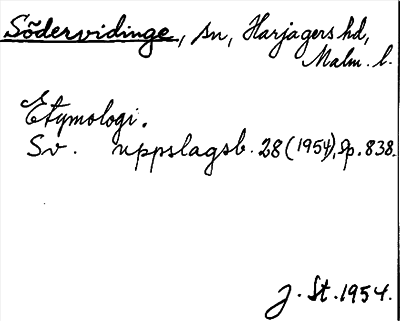 Södervidinge, sn, Harjagers hd,
Malm. l.
Etymologi.
Sv. uppslagsb. 28 (1954), sp. 838.
J. St. 1954.